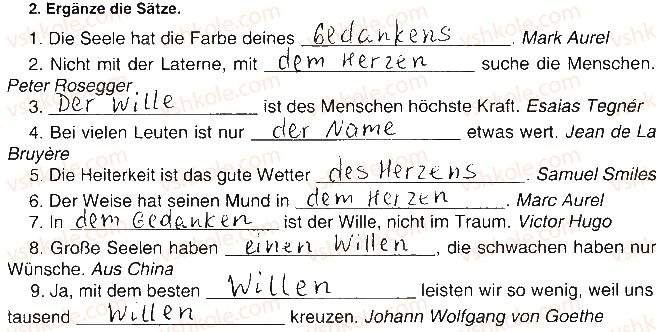 2. Ergänze die Sätze.
1. Die Seele hat die Farbe deines Gedankens. Mark Aurel
2. Nicht mit der Laterne, mit dem Herzen suche die Menschen.
Peter Rosegger
3. Der Wille ist des Menschen höchste Kraft. Esaias Tegnér
4. Bei vielen Leuten ist nur der Name etwas wert. Jean de La
Bruyère
5. Die Heiterkeit ist das gute Wetter des Herzens. Samuel Smiles
6. Der Weise hat seinen Mund in dem Herzen. Marc Aurel
7. In dem Gedanken ist der Wille, nicht im Traum. Victor Hugo
8. Große Seelen haben einen Willen, die schwachen haben nur
Wünsche. Aus China
9. Ja, mit dem besten Willen leisten wir so wenig, weil uns
tausend Willen kreuzen. Johann Wolfgang von Goethe